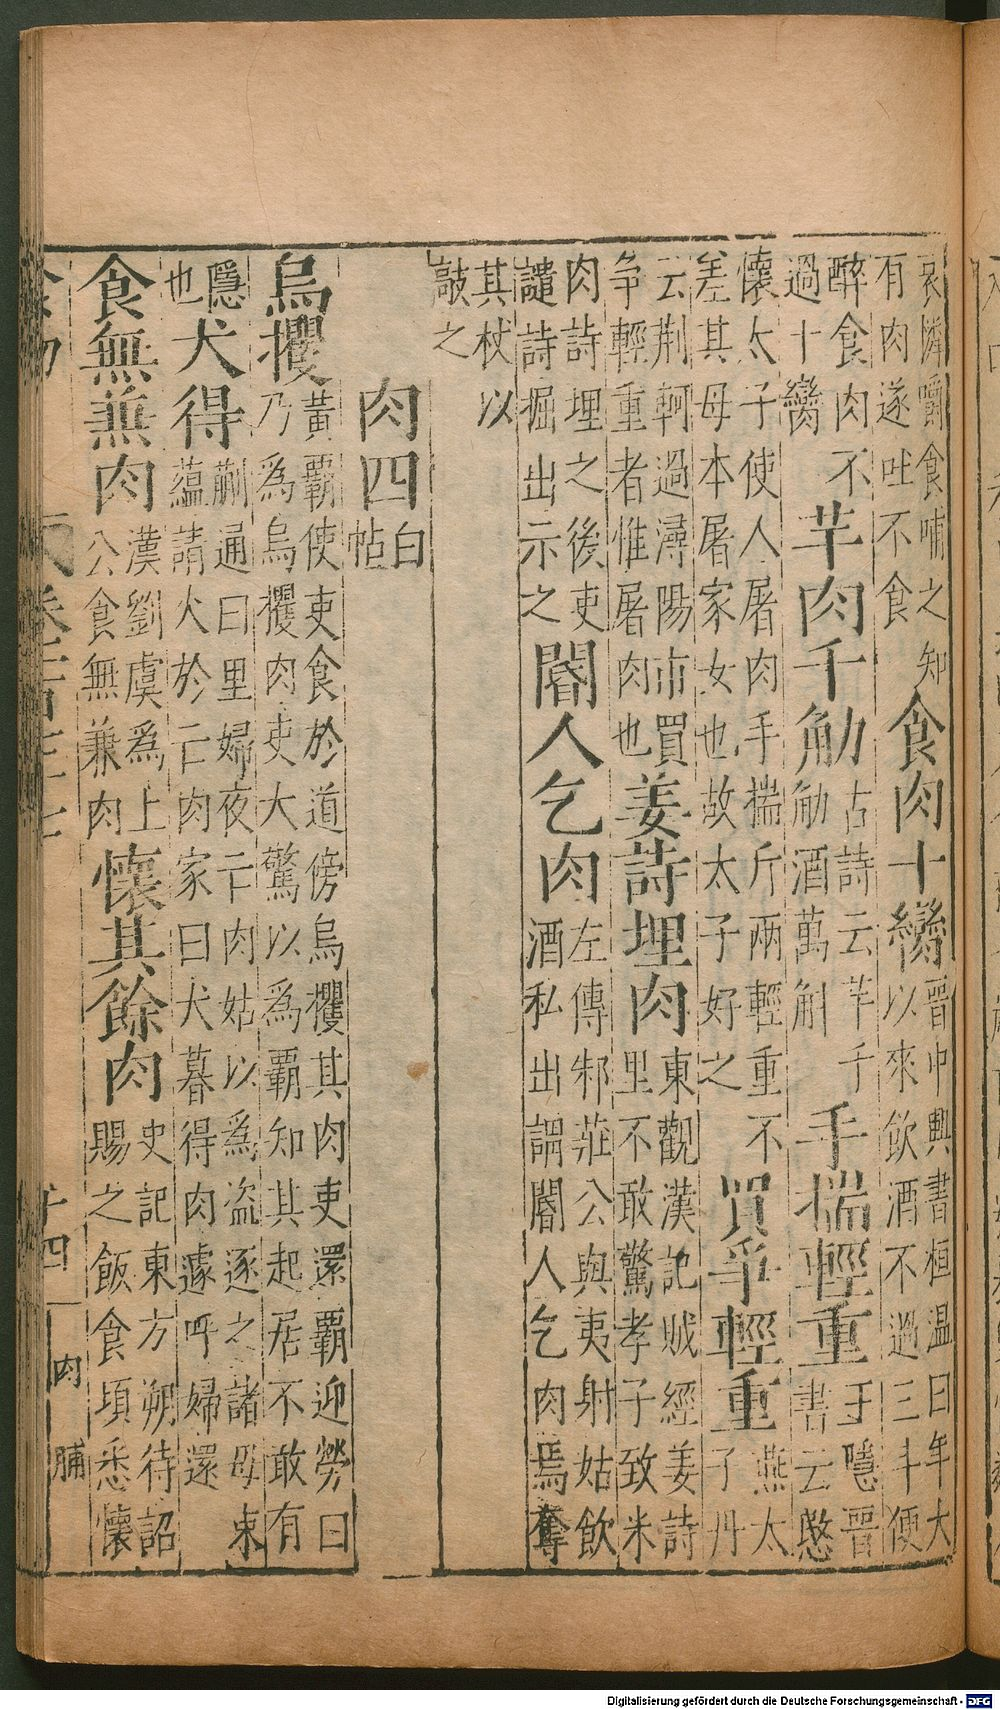 哀憐嚼食哺之知
有肉遂吐不食
食肉十臠
晋中興書桓温曰年大
以來飲酒不過三斗便
醉食肉不
過十臠
芋肉千觔
古詩云芋千
觔酒萬斛
手揣輕重
王隱晉
書云愍
懷太子使人屠肉手揣斤兩輕重不
差其母本屠家女也故太子好之
買爭輕重
燕太
子丹
云荆軻過潯陽市買
争輕重者惟屠肉也
姜詩埋肉
東觀漢記賊經姜詩
里不敢驚孝子致米
肉詩埋之後吏
譴詩掘出示之
閽人乞肉
左傳邾莊公與夷射姑飲
酒私出謂閽人乞肉焉奪
其杖以
敲之
肉四
白
帖
烏攫
黃覇使吏食於道傍烏攫其肉吏還覇迎勞曰
乃爲烏攫肉吏大驚以爲覇知其起居不敢有
隱
也
犬得
蒯通曰里婦夜亡肉姑以爲盜逐之諸母束
藴請火於亡肉家曰犬暮得肉遽呼婦還
食無兼肉
漢劉虞爲上
公食無兼肉
懷其餘肉
史記東方朔待詔
賜之飯食頃悉懷
十四
肉 脯
Digitalisierung gefördert durch die Deutsche Forschungsgemeinschaft - DFG